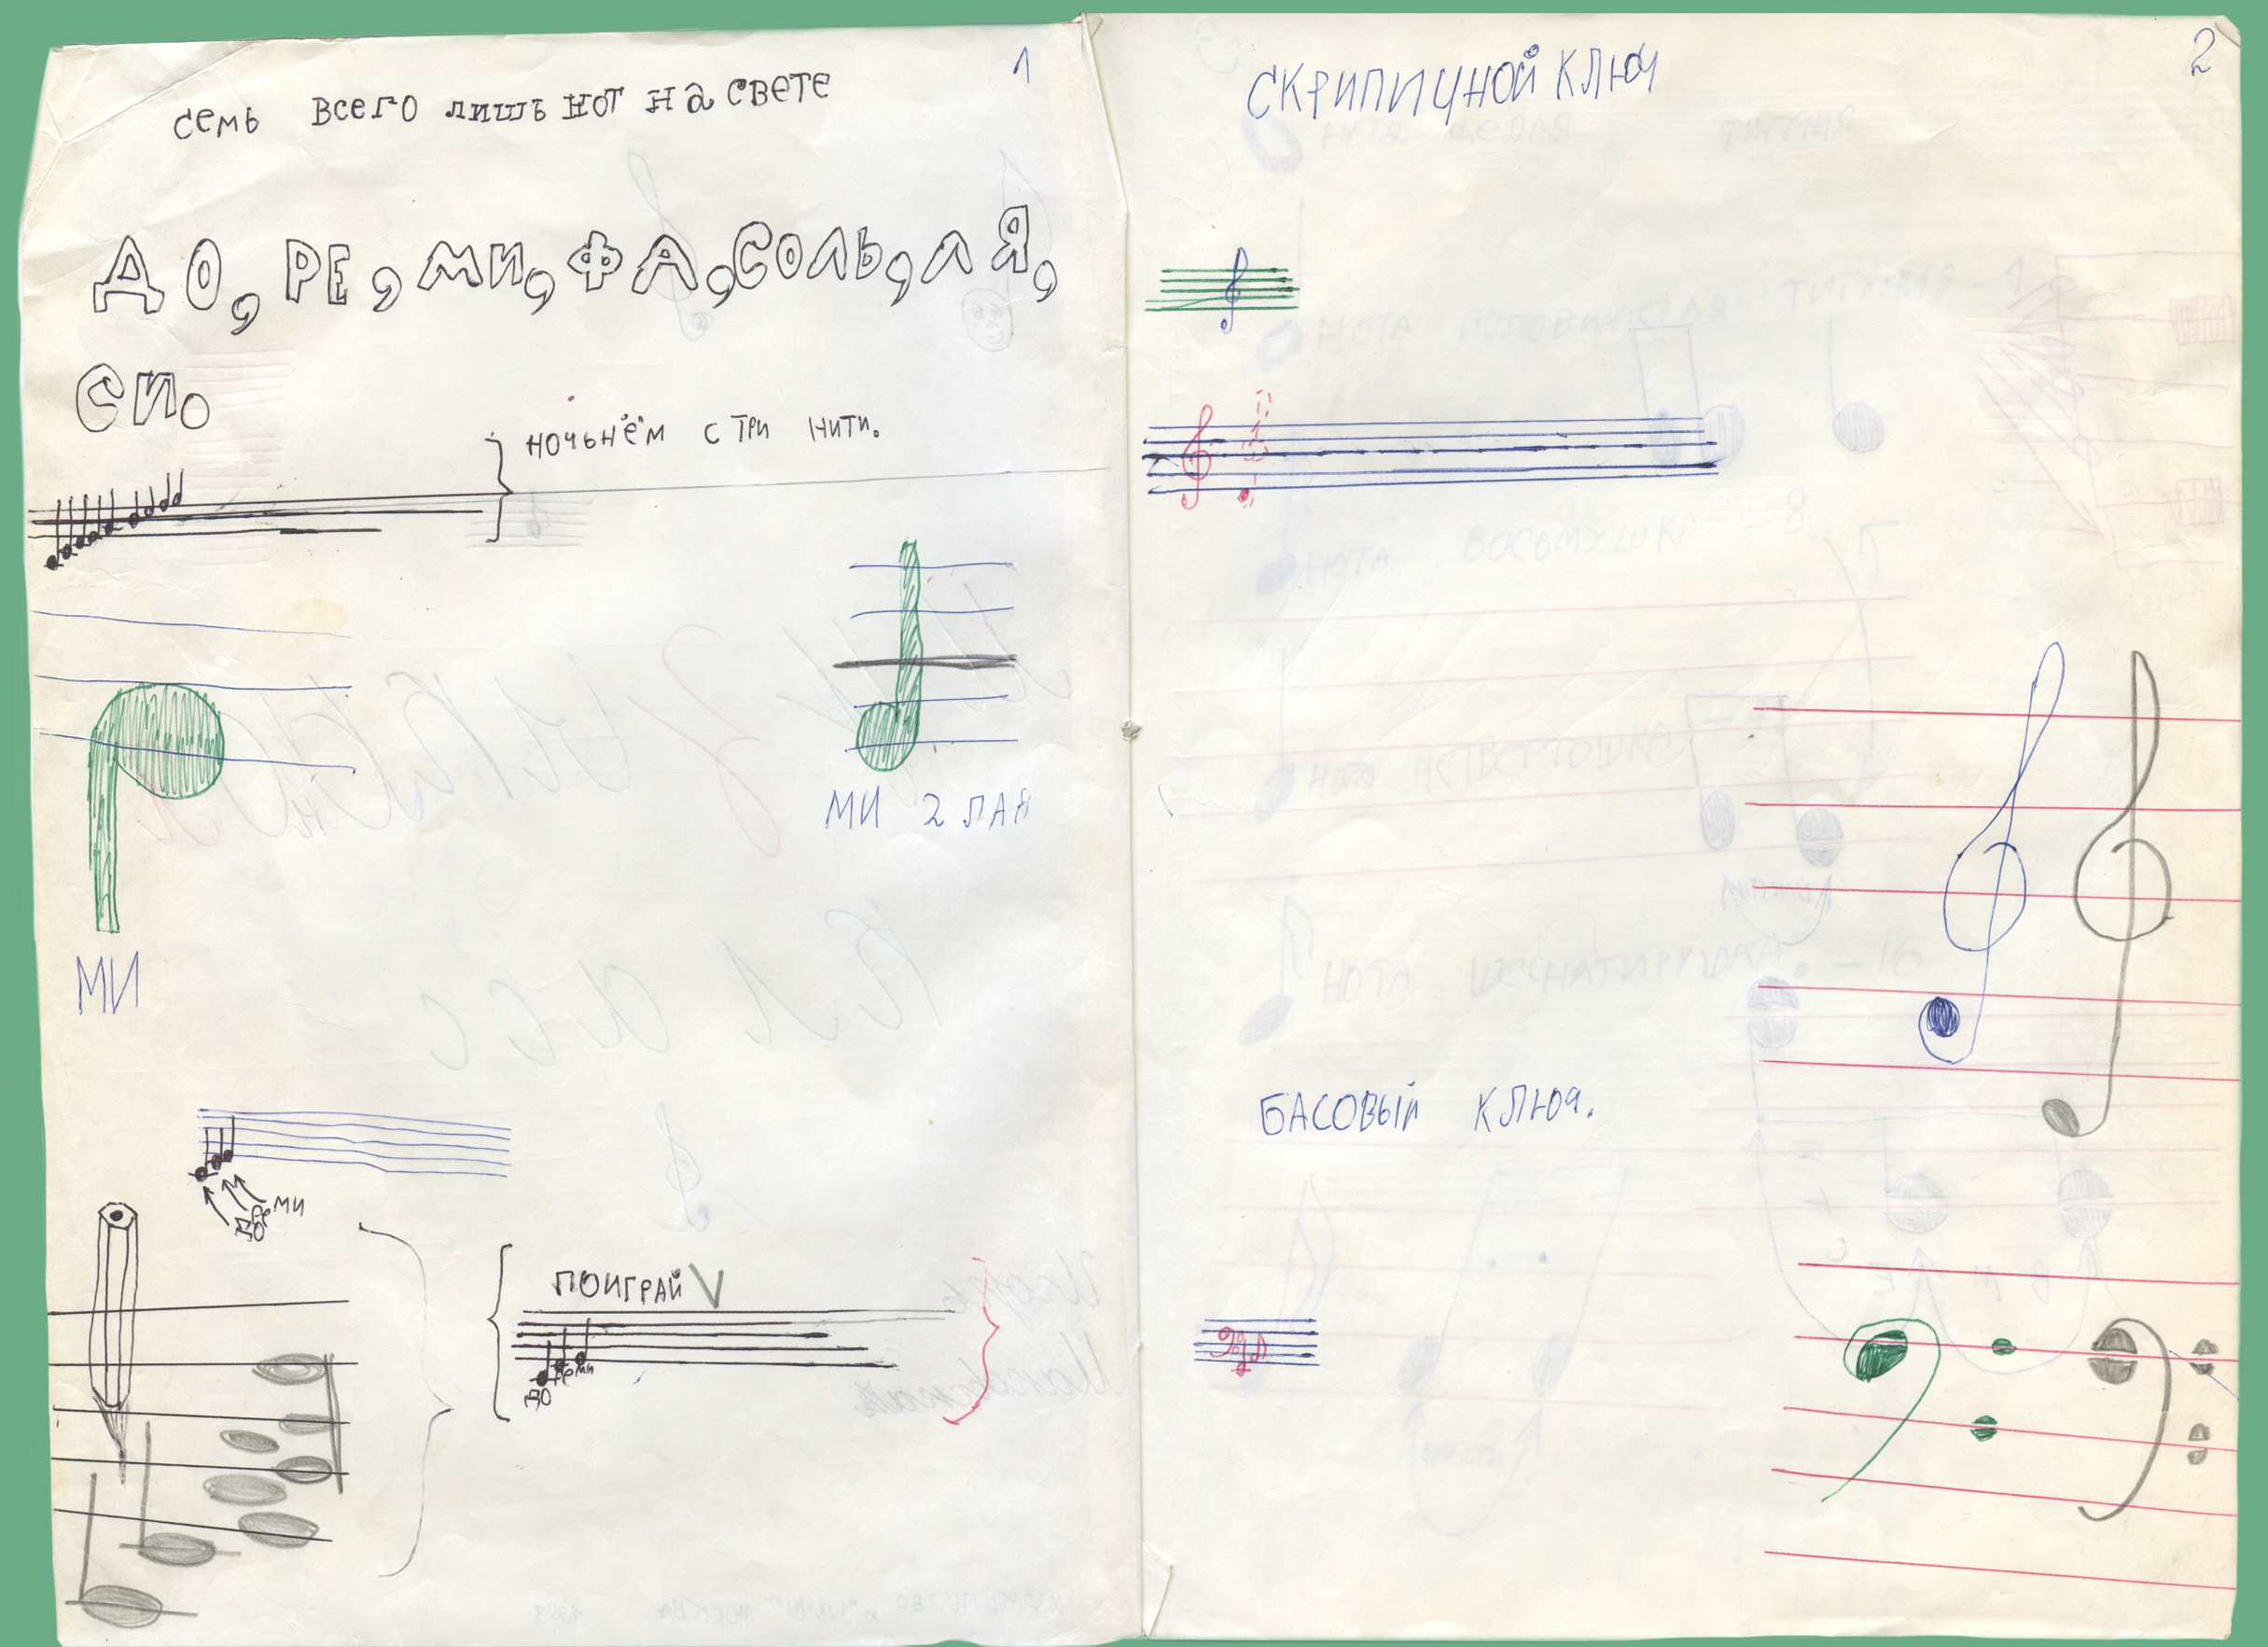 1
семь всего лишь нот на свете
ДО, РЕ, МИ, ФА, СОЛЬ, ЛЯ,
СИ.
НОЧЬНЁМ С ТРИ НИТИ.
МИ 2 ЛАЯ
МИ
ДО РЕ МИ
ПОИГРАЙ V
ДО РЕ МИ
2
СКРИПИЧНОЙ КЛЮЧ
БАСОВЫЙ КЛЮЧ.